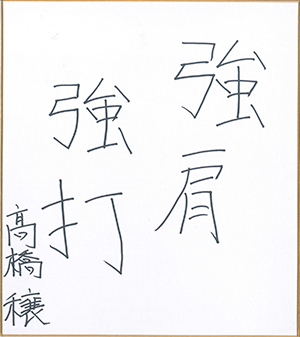 強肩
強打
高橋穣